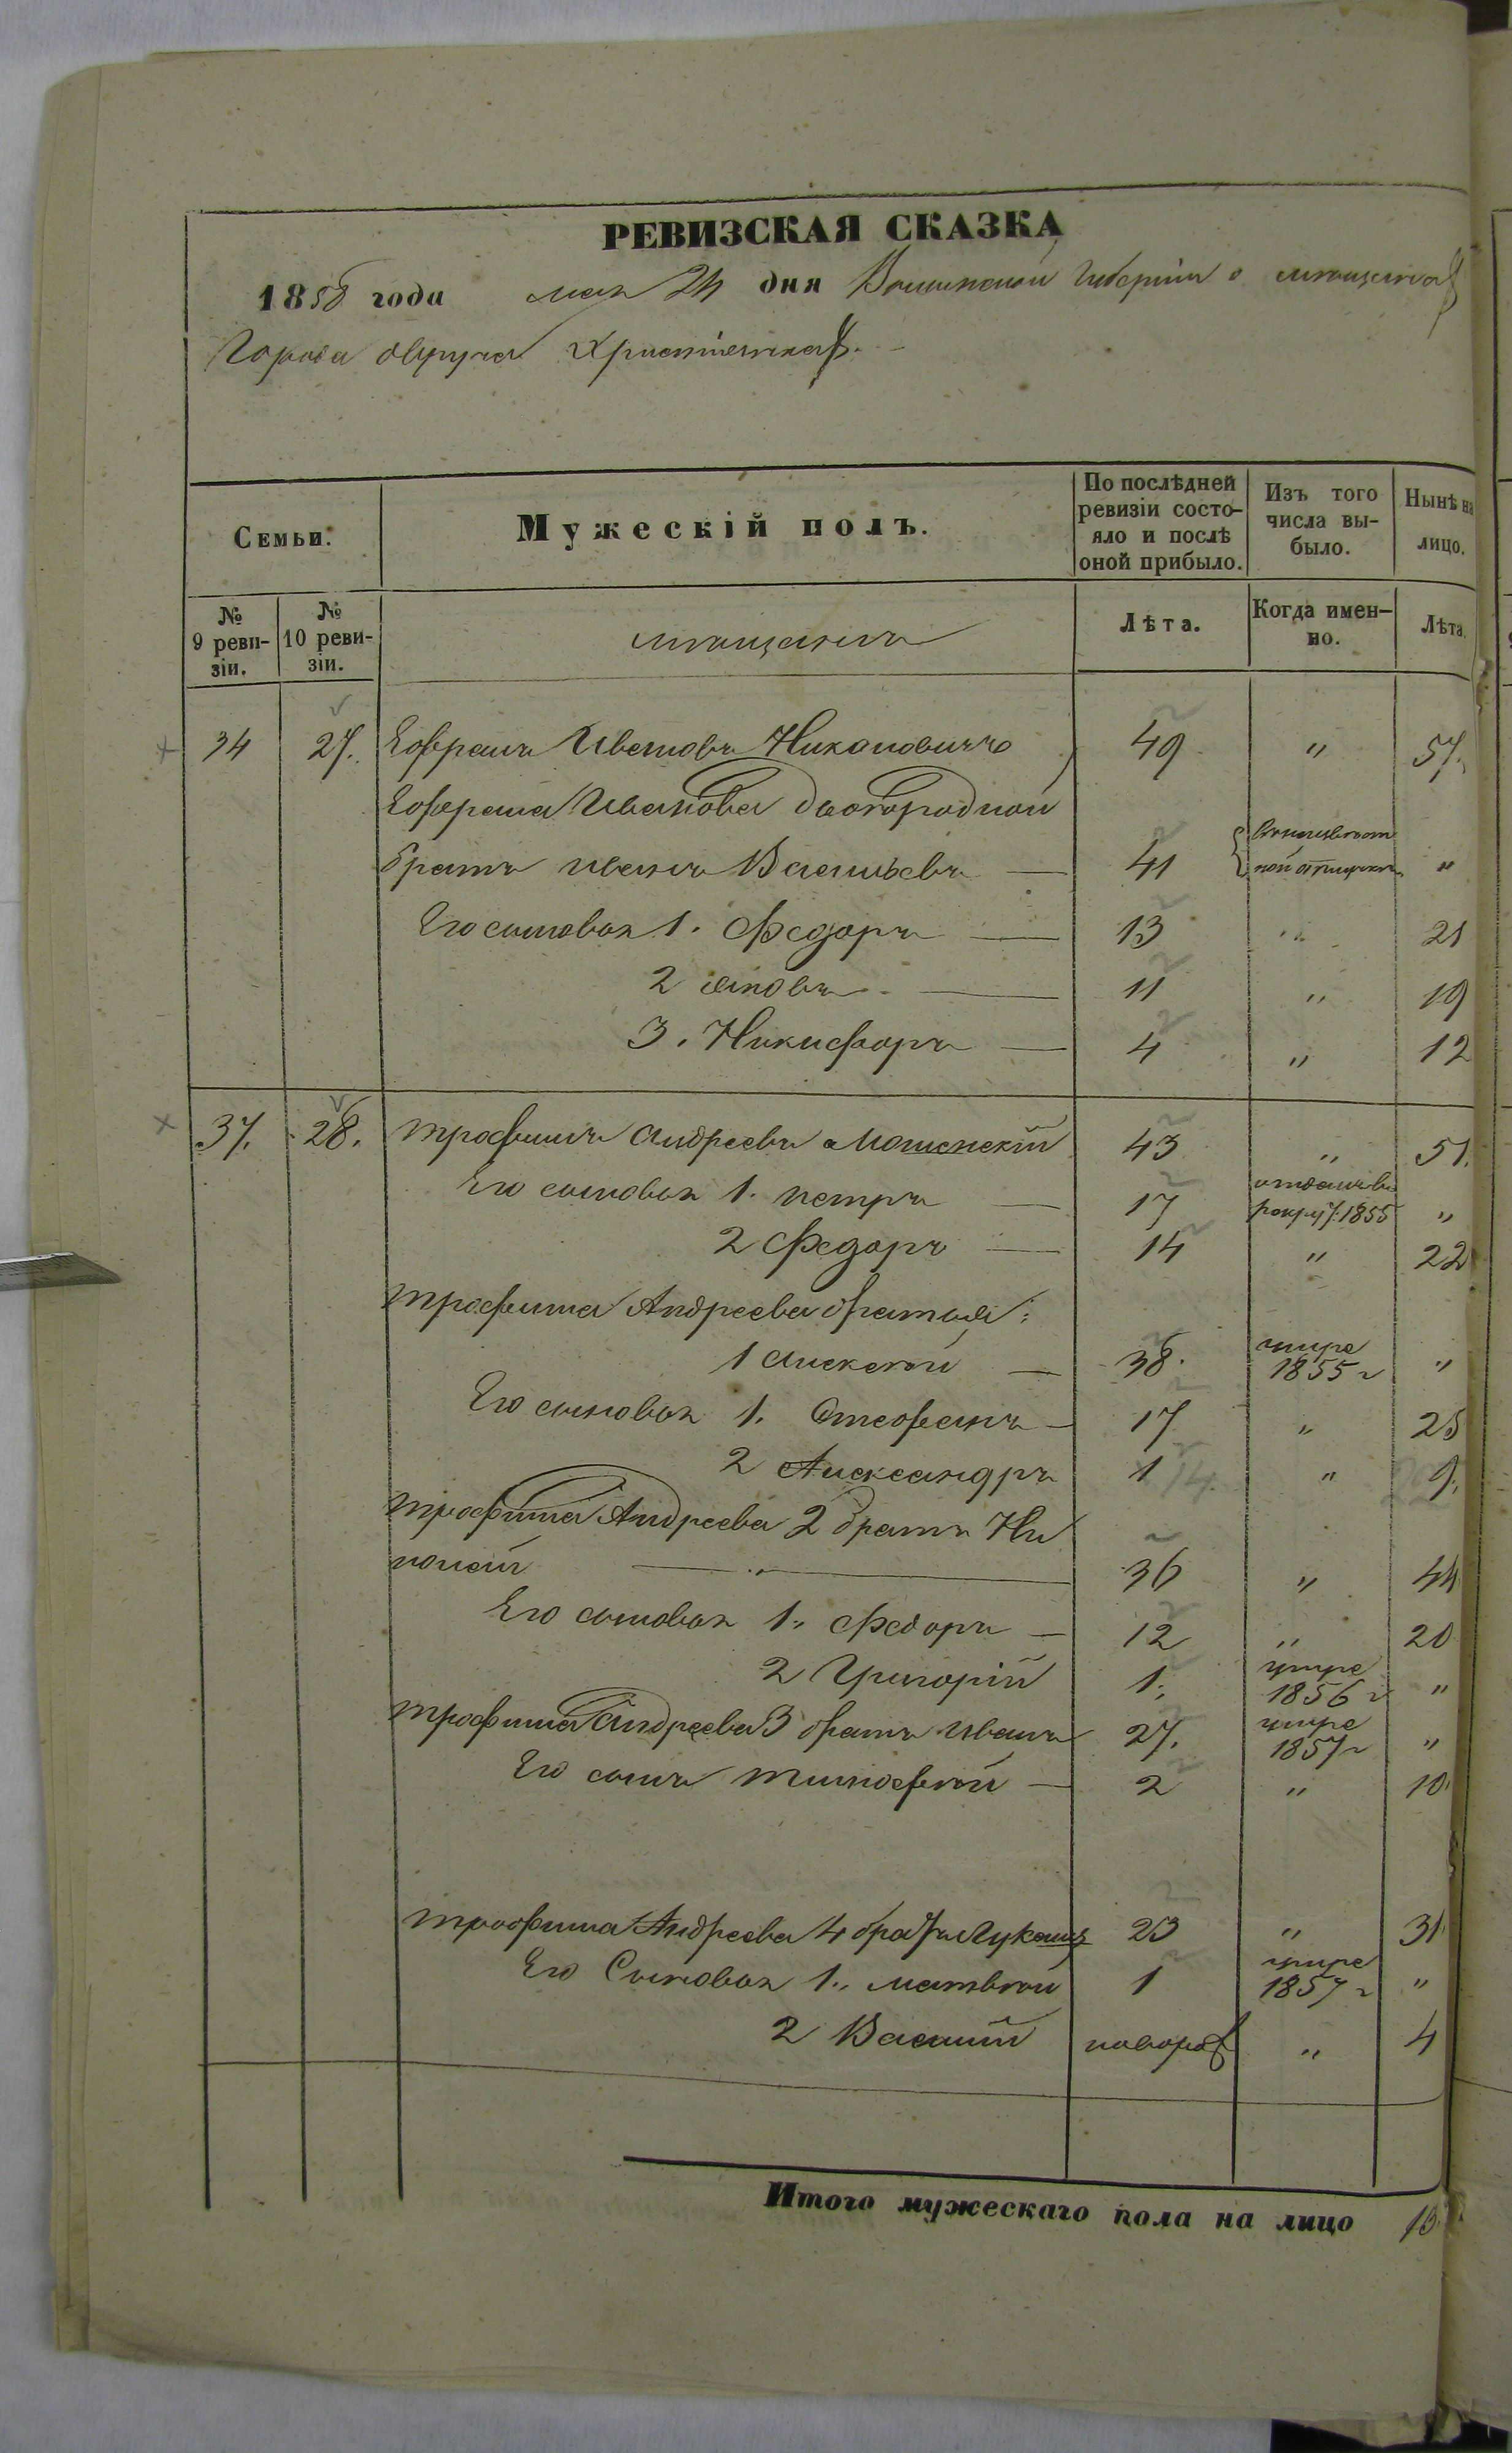 РЕВИЗСКАЯ СКАЗКА
1858 года мая 24 дня Волынской Губернiи о мѣщанахъ
Города Овруча Христiянахъ.
Семьи.
Мужескiй полъ.
По послѣдней ревизiи состо-
яло и послѣ оной прибыло.
Изъ того числа вы-
было.
Нынѣ на лицо.
№ 9 реви-
зiи.
№ 10 реви-
зiи.
мѣщане
Лѣта.
Когда имен-
но.
Лѣта.
34 27. Ефремъ Ивановъ 49 " 57.
Ефрема Иванова двоюродной
братъ иванъ Васильевъ — 41 "
Его сыновья 1. Федоръ — 13 " 21
2 яковъ — 11 " 19
3. Никифоръ — 4 " 12
37. 28. Трофимъ Андреевъ Мошенскiй 43 " 51.
Его сыновья 1. петръ — 17 отданъ въ рекру: 1855 "
2 Федоръ — 14 " 22
Трофима Андреева братья:
1 Алексѣй — 38. умре 1855 г "
Его сыновья 1. Стефанъ — 17 " 25
2 Александръ 1 " 9.
Трофима Андреева 2 братъ Ни
колай — 36 " 44
Его сыновья 1. Федоръ — 12 " 20
2 Григорiй 1. умре 1856 г "
Трофима Андреева 3 братъ иванъ 27. умре 1857 г "
Его сынъ тимофѣй — 2 " 10
Трофима Андреева 4 братъ Лукашъ 23 " 31
Его Сыновья 1. матвѣй 1 умре 1857 г "
2 Василiй новорож " 4
Итого мужескаго пола на лицо 13